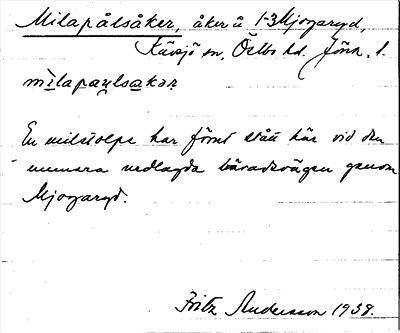 Milapålsåker, åker å 1-3 Mjogaryd,
Kävsjö sn, Östbo hd. Jönk. l.
mìlapaulsakər
En milstolpe har förut stått här vid den
numera nedlagda häradsvägen genom
Mjogaryd.
Fritz Andersson 1938.